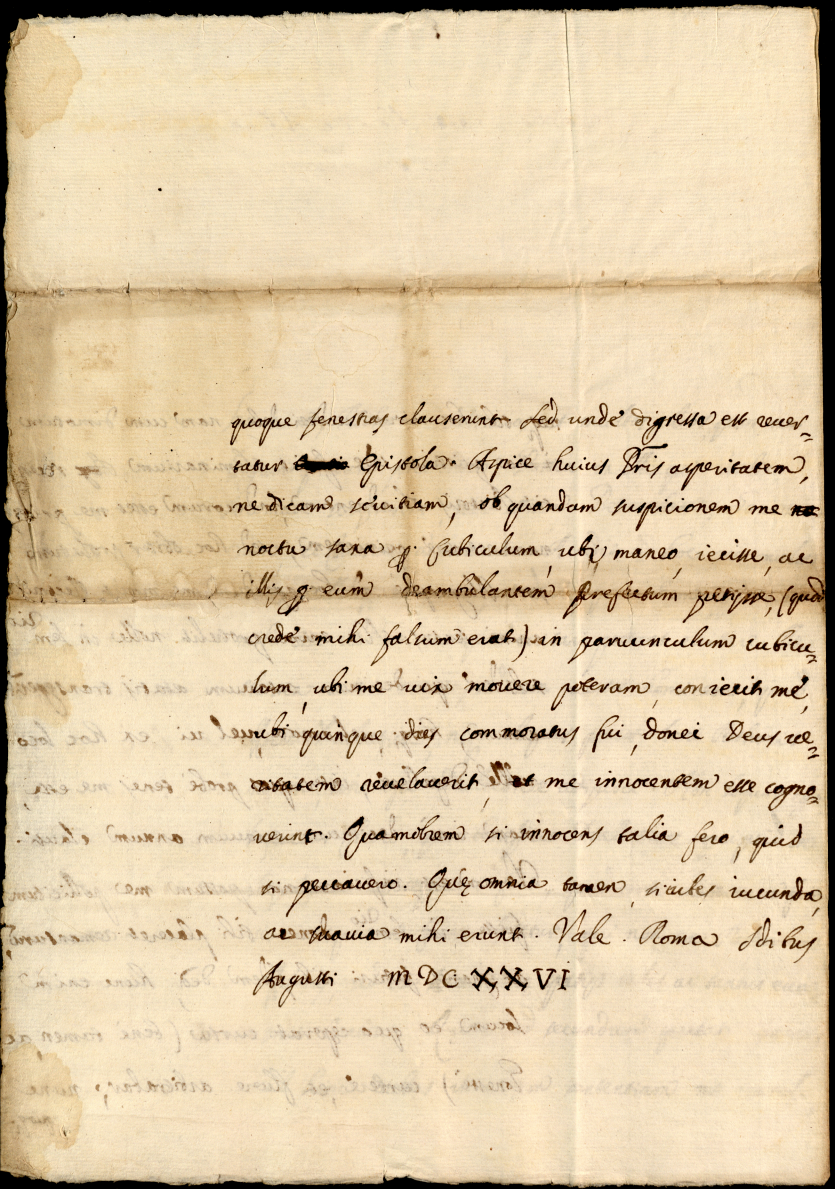 quoque fenestras clauserint. Sed unde digressa est rever-
tatur Epistola. Aspice huius Pris asperitatem,
ne dicam sęvitiam, ob quandam suspicionem me
noctu saxa p cubiculum, ubi maneo, iecisse, ac
illis p eum deambulantem Prefectum petijsse, (quod
crede mihi falsum erat) in parvunculum cubicu-
lum, ubi me vix movere poteram, coniecit me,
ubi quinque dies commoratus fui, donec Deus ve-
ritatem revelaverit, et me innocentem esse cogno-
verint. Quamobrem si innocens talia fero, quid
si peccavero. Quę omnia tamen, si iubes iucunda,
ac suavia mihi erunt. Vale. Roma Idibus
Augusti MDCXXVI